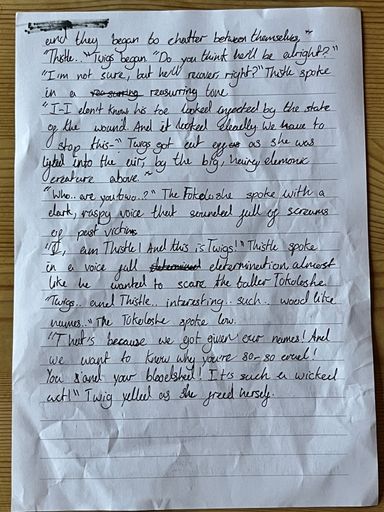 and they began to chatter between themselves,~
"Thistle.." Twigs began "Do you think he'll be alright?"
"I'm not sure, but he'll recover right?" Thistle spoke
in a reasurring tone.
"I-I don't know his toe looked injected by the state
of the wound. And it looked deadly we have to
stop this-" Twigs got cut off as she was
lifted into the air, by the big, hairy demonic
creature above.~
"Who.. are you two..?" The Tokoloshe spoke with a
dark, raspy voice that sounded full of screams
of past victims.
"I, am Thistle! And this is Twigs!" Thistle spoke
in a voice full determination, almost
like he wanted to scare the taller Tokoloshe.
"Twigs.. and Thistle.. interesting.. such.. wood like
names.." The Tokoloshe spoke low.
"That's because we got given our names! And
we want to know why you're so-so cruel!
You and your bloodshed! It's such a wicked
act!" Twig yelled as she freed herself.